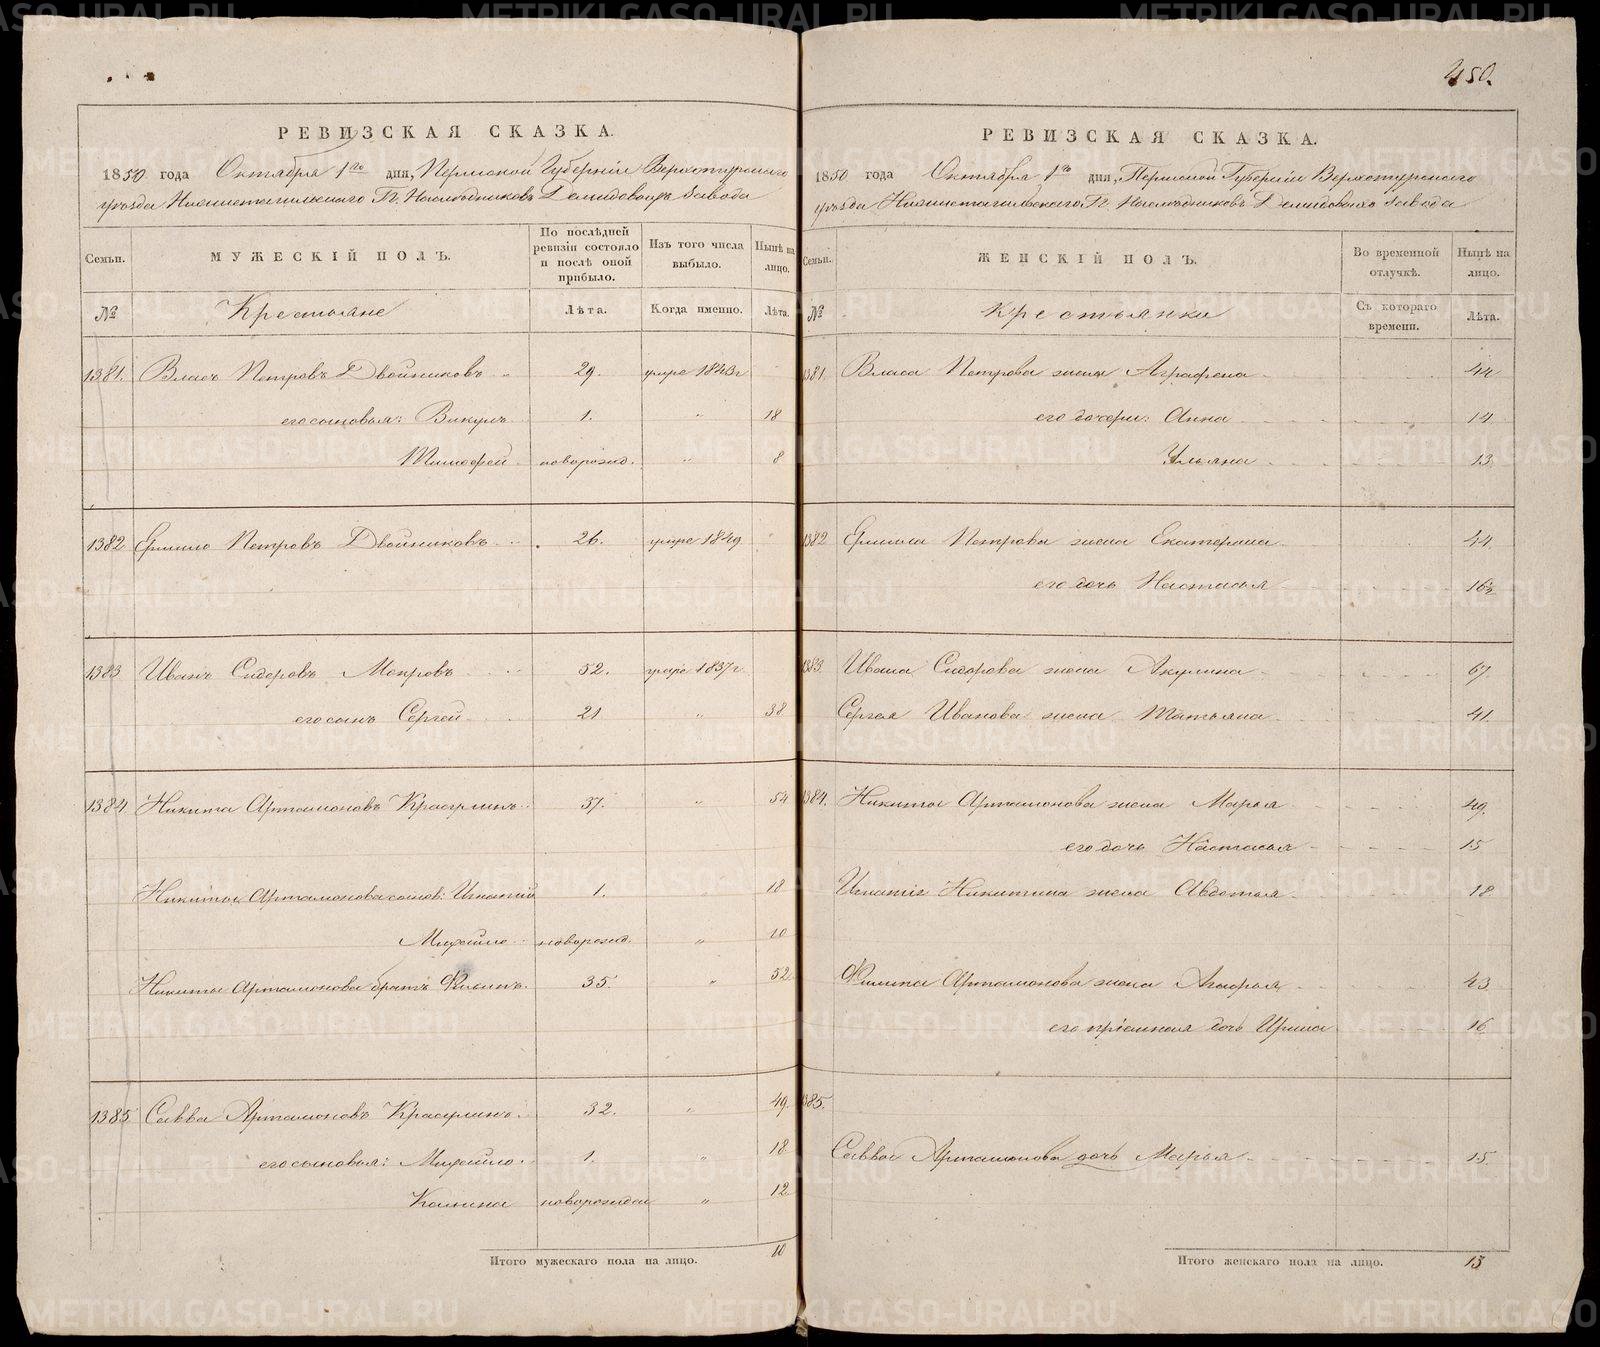 450.
РЕВИЗСКАЯ СКАЗКА.
1850 года Октября 1го дня, Пермской Губерніи Верхотурскаго
уѣзда Нижнетагильскаго Гг. Наслѣдниковъ Демидовыхъ Завода
Семьи. МУЖЕСКІЙ ПОЛЪ. По послѣдней ревизіи состояло и послѣ оной прибыло. Изъ того числа выбыло. Нынѣ на лицо.
№ Крестьяне Лѣта. Когда именно. Лѣта.
1381. Власъ Петровъ Двойниковъ 29. умре 1843г
его сыновья: Викулъ 1. " 18
Тимофей новорожд. " 8
1382 Ермило Петровъ Двойниковъ 26. умре 1849
1383 Иванъ Сидоровъ Мокровъ 52. умре 1837г.
его сынъ Сергей 21 " 38
1384. Никита Артамоновъ Красулинъ 37. " 54
Никиты Артамонова сынов: Игнатій 1. " 18
Михайло новорожд. " 10
Никиты Артамонова братъ Филипъ. 35. " 52
1385 Савва Артамоновъ Красулинъ. 32. " 49
его сыновья: Михайло 1. " 18
Калина новорожден " 12
Итого мужескаго пола на лицо. 10
РЕВИЗСКАЯ СКАЗКА.
1850 года Октября 1го дня, Пермской Губерніи Верхотурскаго
уѣзда Нижнетагильскаго Гг. Наслѣдниковъ Демидовыхъ завода
Семьи. ЖЕНСКІЙ ПОЛЪ. Во временной отлучкѣ. Нынѣ на лицо.
№ Крестьянки Съ котораго времени. Лѣта.
1381. Власа Петрова жена Аграфена 44
его дочери: Анна 14
Ульяна 13
1382 Ермила Петрова жена Екатерина 44
его дочь Настасья 16½
1383. Ивана Сидорова жена Акулина 67.
Сергея Иванова жена Татьяна 41.
1384. Никиты Артамонова жена Марья 49.
его дочь Настасья 15
Игнатія Никитина жена Авдотья 18
Филипа Артамонова жена Агафья 43
его пріемная дочь Ирина 16
1385.
Саввы Артамонова дочь Марья 15.
Итого женскаго пола на лицо. 13
METRIKI.GASO-URAL.RU